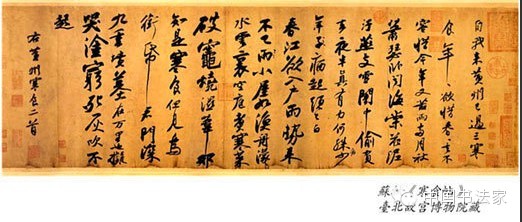 自我來黃州已過三寒
食年〻欲惜春春去不
容惜今年又苦雨兩月秋
蕭瑟卧聞海棠花泥
汙燕支雪闇中偷負
去夜半真有力何殊少
年子病起頭已白
春江欲入戶雨勢來
不已雨小屋如漁舟濛〻
水雲裏空庖煮寒菜
破竈燒濕葦那
知是寒食但見烏
銜帋君門深
九重墳墓在万里也擬
哭塗窮死灰吹不
起
右黃州寒食二首
蘇 《寒食帖》
臺北故宮博物院藏
中国书法家